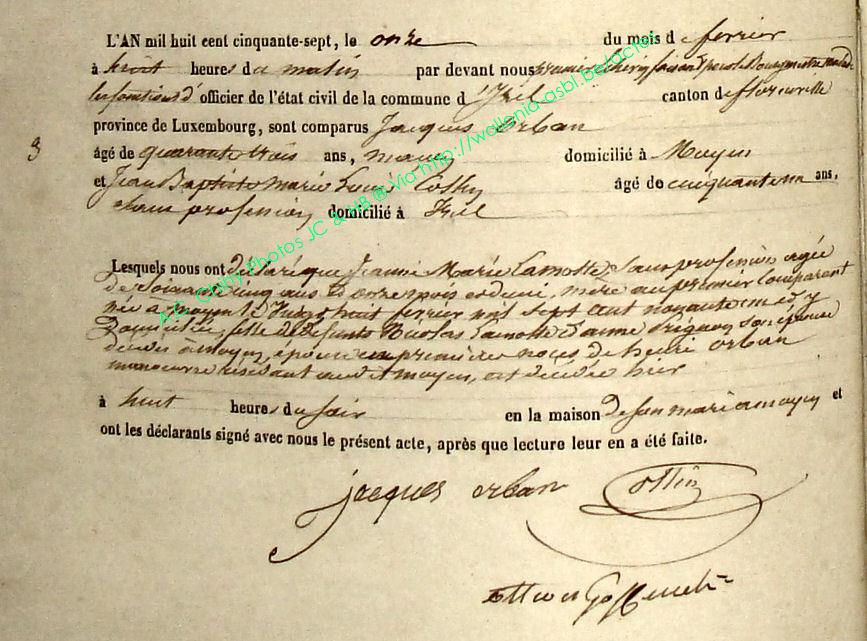 L'AN mil huit cent cinquante-sept, le onze du mois de ferrier
à huit heures du matin par devant nous premier
les fonctions d'officier de l'état civil de la commune d'Izel canton de florenville
province de Luxembourg, sont comparus Jacques Orban
3
âgé de quarante trois ans, domicilié à Moyen
et Jean Baptiste Marie Louis âgé de cinquante un ans,
sans profession domicilié à Izel
Lesquels nous ont déclaré que Jeanne Marie Lamotte, sans profession agée
de Soixante cinq ans et onze mois et demi, mère au premier Comparant
née à moyen le vingt huit ferrier mil sept cent nonante un et y
Domiciliée, fille de defunts Nicolas Lamotte et anne son épouse
décédés à moyen, épouse en premières noces de henri orban
manoeuvre résidant audit moyen, est décédée hier
à huit heures du soir en la maison de son mari à moyen et
ont les déclarants signé avec nous le présent acte, après que lecture leur en a été faite.
jacques orban
A.E. Chiny Photos JC & HB ® Via http://wallonia-asbl.be/actoi